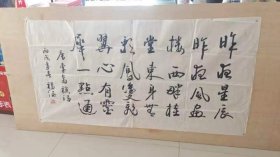 昨夜星辰
昨夜風畫
樓西畔桂
堂東身無
彩鳳雙飛
翼心有靈
犀一點通